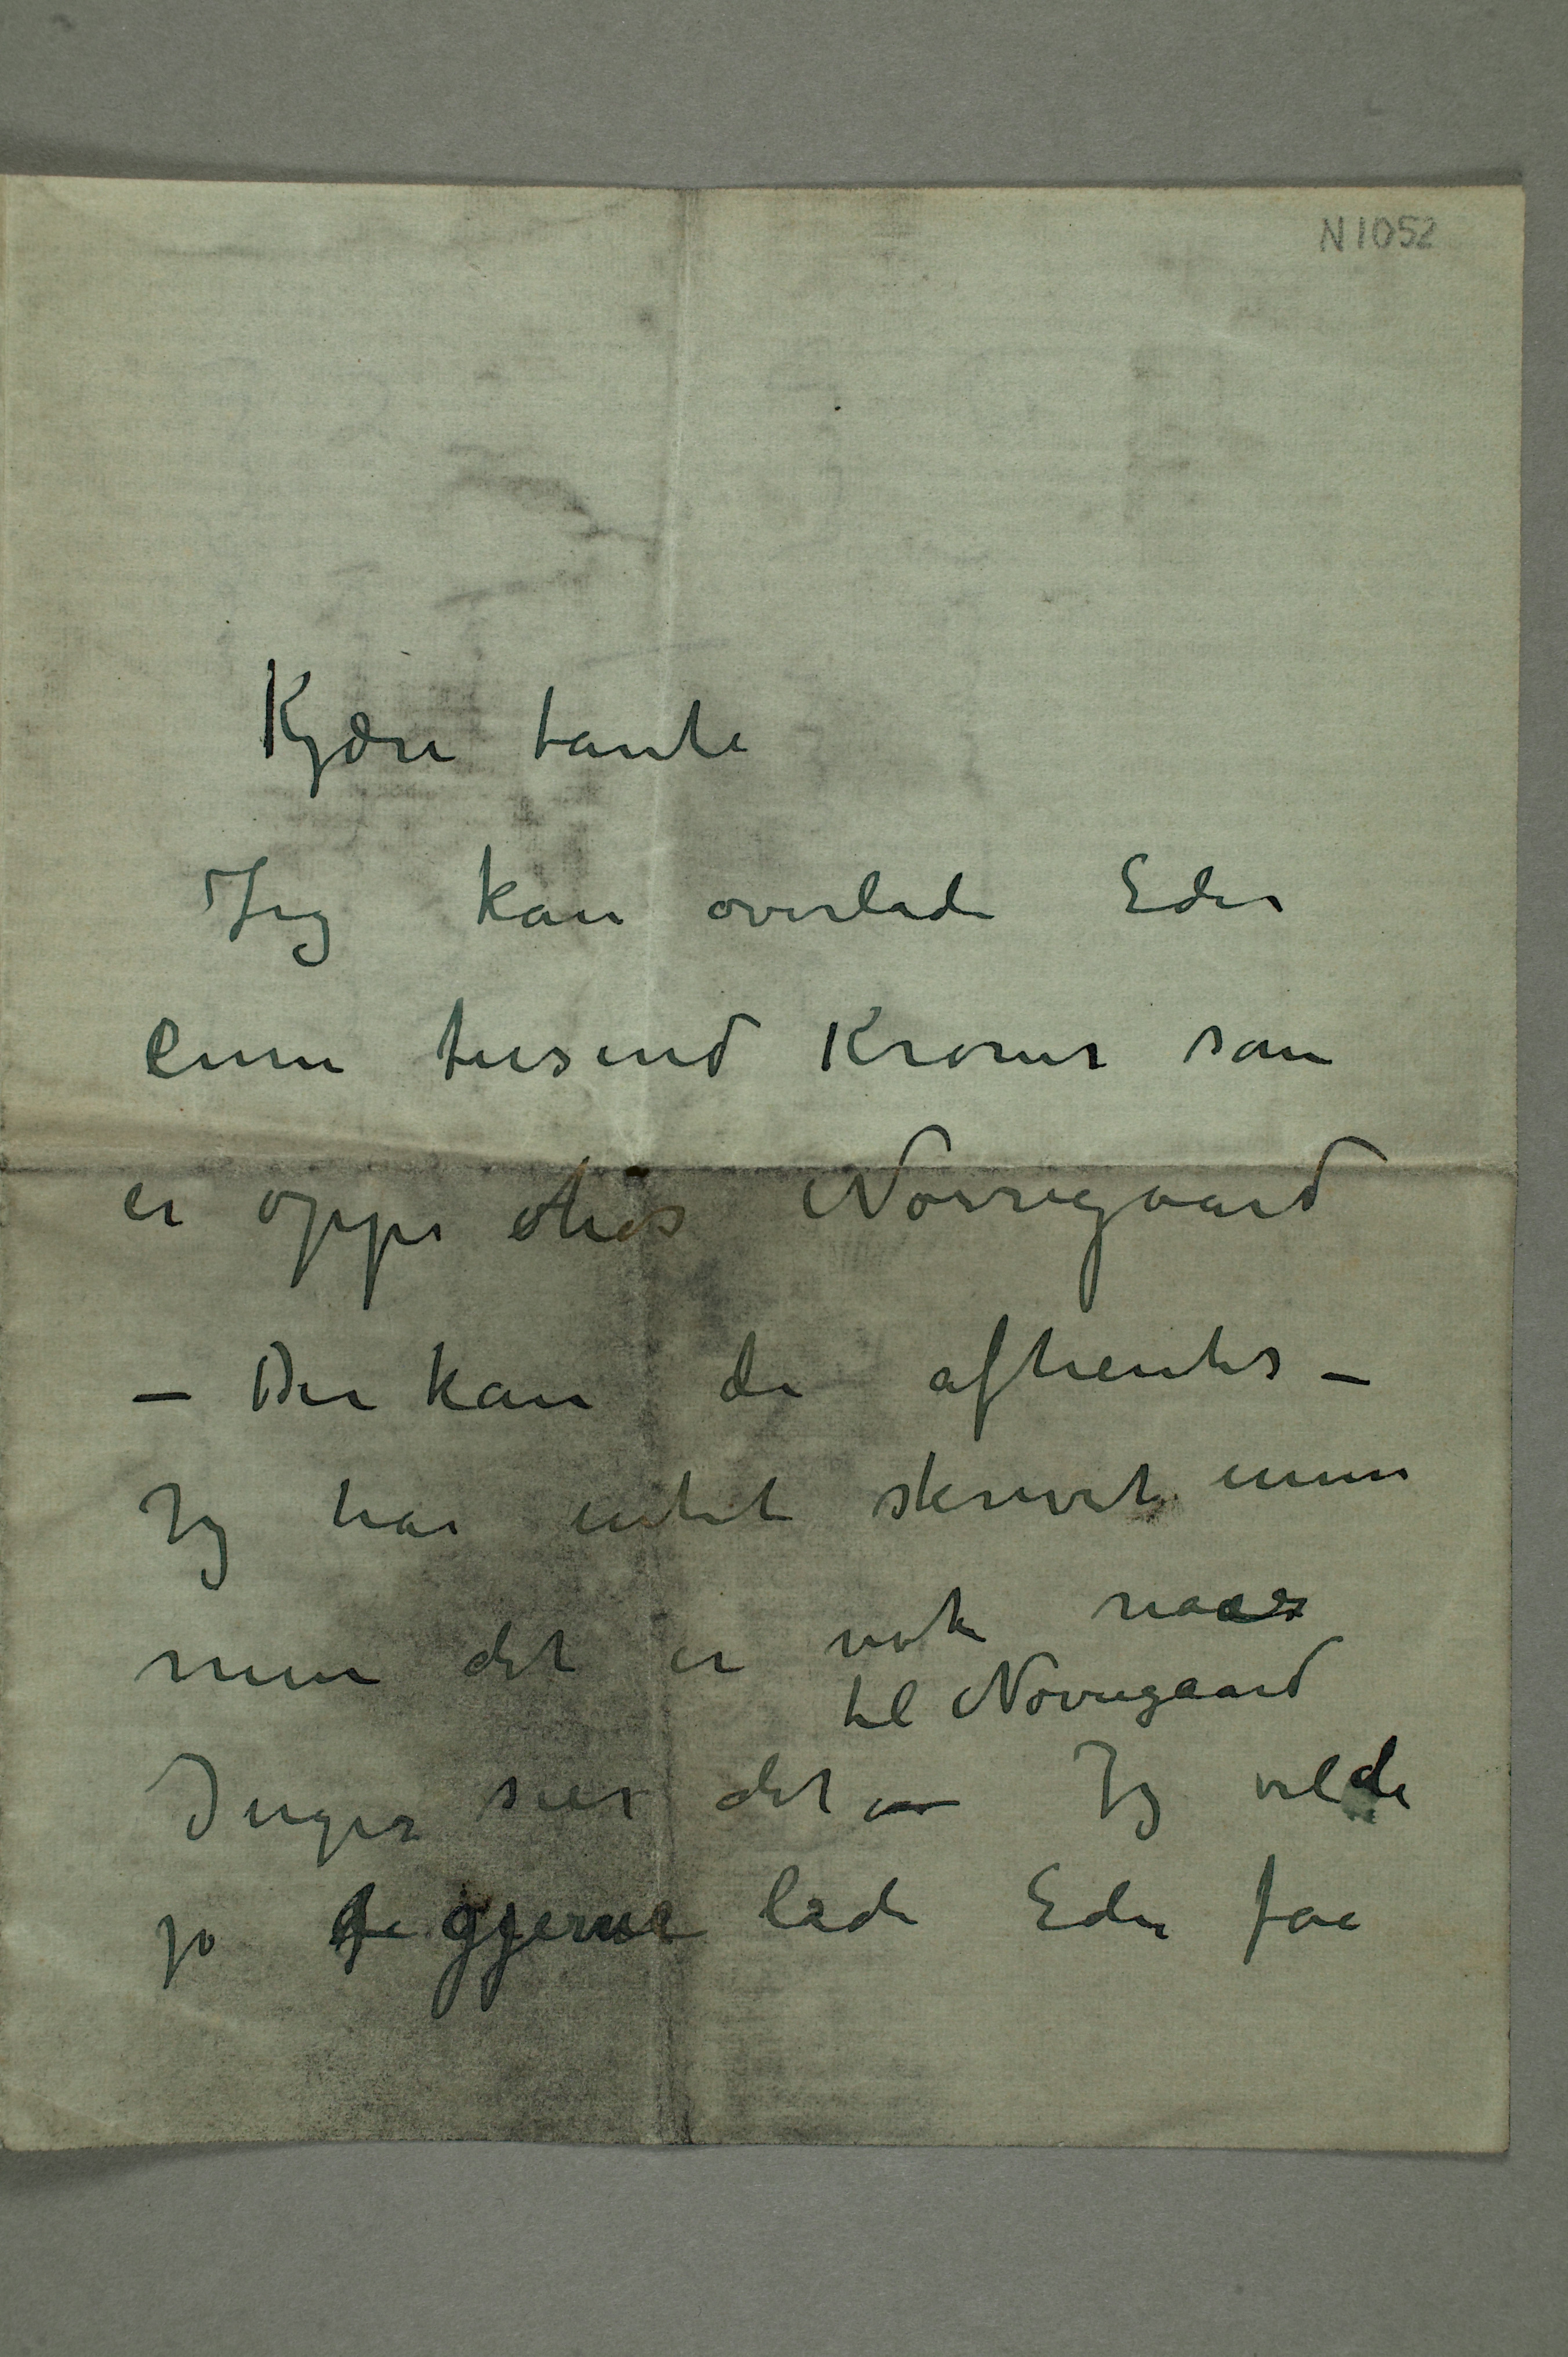 N 1052
Kjære tante
Jeg kan overlade Eder
ennu tusend Kroner som
er oppe hos Nørregaard
– Der kan de afhentes –
Jeg har intet skrevet ennu
men det er nok naar
til Nørregaard
Inger sier det – Jeg vilde
jo gjerne lade Eder faa